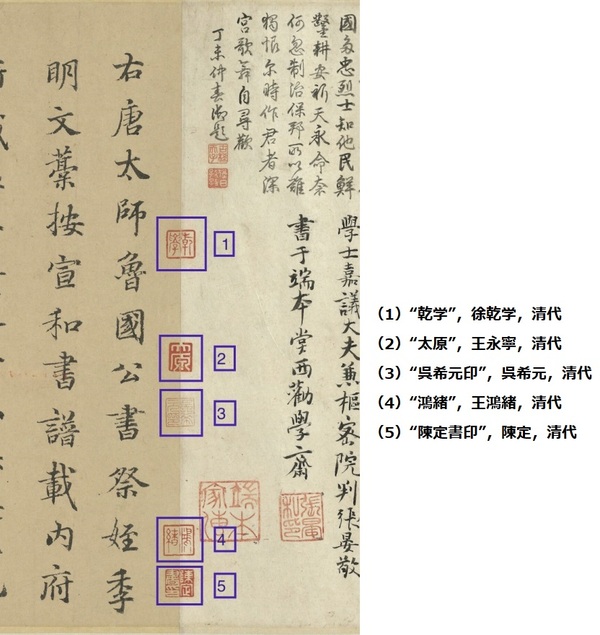 國多忠烈士知他民鮮
耕安祈天永命奈
何忽制治保邦所以雖
獨恨尔時作君者深
宮歌舞自尋歡
丁未仲春御題
學士嘉議大夫兼樞密院判張晏敬
書于端本堂西勸學齋
張晏私印
端本家傳
乾學
1
2
3
鴻緒
4
陳定書印
5
右唐太師魯國公書祭姪季
明文藁按宣和書譜載內府
（1）“乾学”，徐乾学，清代
（2）“太原”，王永寧，清代
（3）“吳希元印”，吳希元，清代
（4）“鴻緒”，王鴻緒，清代
（5）“陳定書印”，陳定，清代